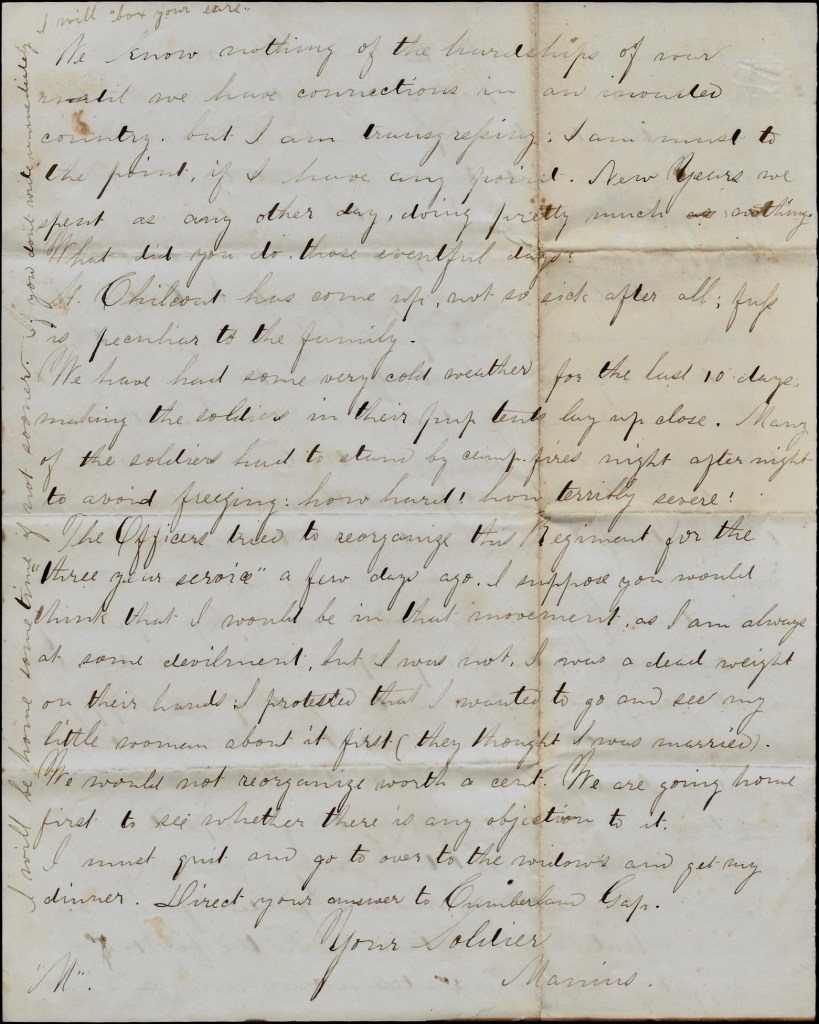 We know nothing of the hardships of war
until we have connections in an invaded
country. but I am transgressing: I am must to
the point, if I have any point. New Years we
spent as any other day, doing pretty much as nothing.
What did you do those eventful days?
Chilcoat has come up, not so sick after all; fuss
is peculiar to the family.
We have had some very cold weather for the last 10 days;
making the soldiers in their pup tents lay up close. Many
of the soldiers had to stand by camp-fires night after night
to avoid freezing: how hard! how terribly severe!
The Officers tried to reorganize this Regiment for the
"three year service" a few days ago. I suppose you would
think that I would be in that movement, as I am always
at some devilment, but I was not. I was a dead weight
on their hands: I protested that I wanted to go and see my
little woman about it first (they thought I was married).
We would not reorganize worth a cent. We are going home
first to see whether there is any objection to it.
I must quit and go to over to the widows and get my
dinner. Direct your answer to Cumberland Gap.
Your Soldier
"M". Marius.
I will be home sometime if not sooner. If you don't write immediately
I will "box your ears."